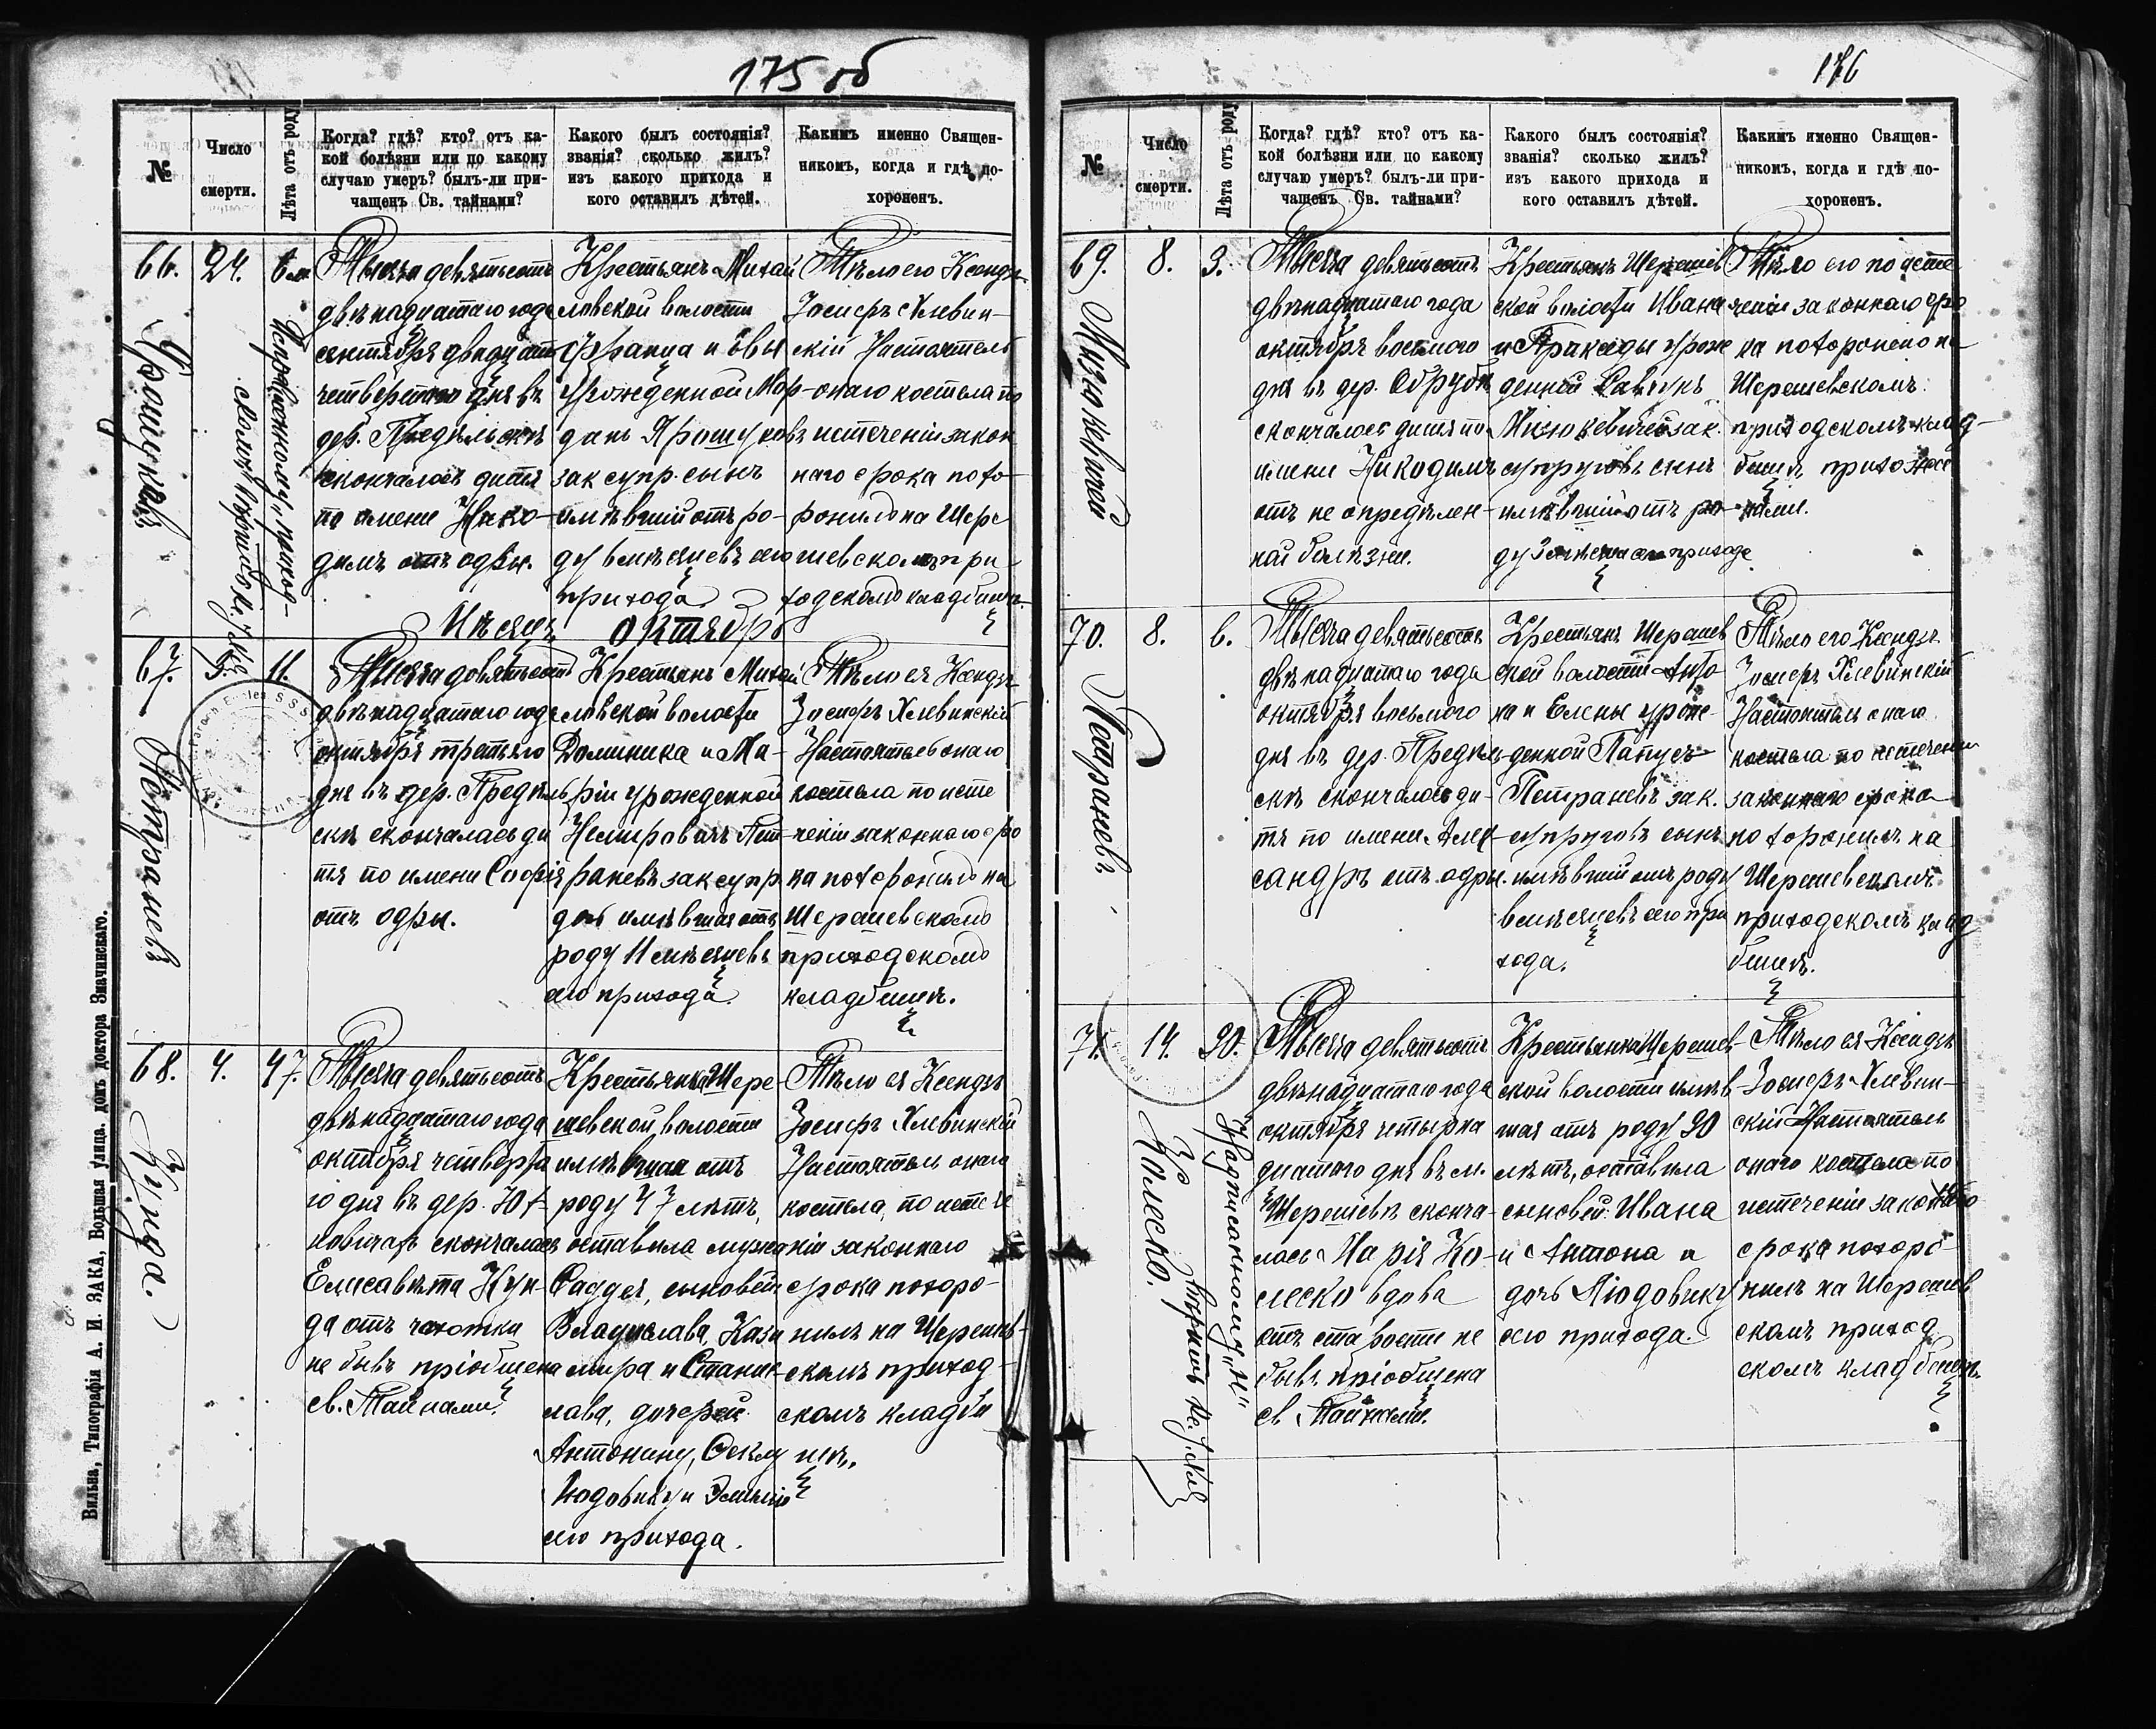 175 об
№
Число
смерти.
Лѣта отъ роду
Когда? гдѣ? кто? отъ ка-
кой болѣзни или по какому
случаю умеръ? былъ-ли при-
чащенъ Св. тайнами?
Какого былъ состоянія?
званія? сколько жилъ?
изъ какого прихода и
кого оставилъ дѣтей.
Какимъ именно Священ-
никомъ, когда и гдѣ по-
хороненъ.
66.
Ярошуковъ
24.
6 м
Исправленному „приход-
скомъ“ вѣрить
Тысяча девятьсотъ
двѣнадцатаго года
сентября двадцать
четвертаго дня въ
дер. Предѣльскѣ
скончалось дитя
по имени Нико-
димъ отъ одры.
Крестьянъ Михай
ловской волости
Франца и Евы
урожденной Мор-
дань Ярошуковъ
зак супр. сынъ
имѣвшій отъ ро-
ду 6 мѣсяцевъ сего
прихода
Тѣло его Ксендзъ
Зосифъ Хлевин-
скій Настоятель
онаго костела по
истеченіи закон
наго срока похо-
ронилъ на Шере
шевскомъ при
ходскомъ кладбищѣ.
Мѣсяцъ октябрь
67.
Петраневъ
3.
11.
Тысяча девятьсотъ
двѣнадцатаго года
октября третьяго
дня въ дер. Предѣль
скѣ скончалась ди
тя по имени Софія
отъ одры.
Крестьянъ Михай
ловской волости
Доминика и Ма-
ріи урожденной
Немировачъ Пет-
раневъ зак супр
дочь имѣвшая отъ
роду 11 мѣсяцевъ
сего прихода.
Тѣло ея Ксендзъ
Зосифъ Хлевинскій
Настоятель онаго
костела по исте
ченіи законнаго сро
ка похоронилъ на
Шерешевскомъ
приходскомъ
кладбищѣ.
68.
Кунда.
4.
47.
Тысяча девятьсотъ
двѣнадцатаго года
октября четверта
го дня въ дер. Юх-
новичахъ скончалась
Елисавета Кун-
да отъ чахотки
не бывъ пріобщена
св. Тайнами.
Крестьянка Шере-
шевской волости
имѣвшая отъ
роду 47 лѣтъ,
оставила мужа
Фаддея, сыновей
Владислава, Кази
мира и Станис-
лава, дочерей
Антонину, Феклу
Людовику и Эмилію
сего прихода.
Тѣло ея Ксендзъ
Зосифъ Хлевинскій
Настоятель онаго
костела, по истече
ніи законнаго
срока похоро-
нилъ на Шерешев-
скомъ приход-
скомъ кладби
щѣ.
Вильна, Типографія А. И. ЗАКА, Большая улица. домъ доктора Значинскаго.
176
№
Число
смерти.
Лѣта отъ роду
Когда? гдѣ? кто? отъ ка-
кой болѣзни или по какому
случаю умеръ? былъ-ли при-
чащенъ Св. тайнами?
Какого былъ состоянія?
званія? сколько жилъ?
изъ какого прихода и
кого оставилъ дѣтей.
Какимъ именно Священ-
никомъ, когда и гдѣ по-
хороненъ.
69.
Мизюкевичей
8.
3.
Тысяча девятьсотъ
двѣнадцатаго года
октября восьмого
дня въ дер. Обрубѣ
скончалось дитя по
имени Никодимъ
отъ не опредѣлен-
ной болѣзни.
Крестьянъ Шерешев
ской волости Ивана
и Пракседы урож
денной Савчукъ
Мизюкевичей зак.
супруговъ сынъ
имѣвшій отъ ро-
ду 3 мѣсяца сего прихода
Тѣло его по исте
ченіи законнаго сро
ка похоронено на
Шерешевскомъ
приходскомъ клад-
бищѣ, прихожа-
нами.
70.
Петраневъ
8.
6.
Тысяча девятьсотъ
двѣнадцатаго года
октября восьмого
дня въ дер. Предѣль-
скѣ скончалось ди-
тя по имени Алек-
сандръ отъ одры.
Крестьянъ Шерешев
ской волости Анто
на и Елены урож-
денной Папусь
Петраневъ зак.
супруговъ сынъ
имѣвшій отъ роду
6 мѣсяцевъ сего при
хода.
Тѣло его Ксендзъ
Зосифъ Хлевинскій
Настоятель онаго
костела по истеченіи
законнаго срока
похоронилъ на
Шерешевскомъ
приходскомъ клад
бищѣ.
71.
Колеско.
14.
90.
Надписанному „н“
вѣрить
Тысяча девятьсотъ
двѣнадцатаго года
октября четырна
дцатаго дня въ м.
Шерешевѣ сконча-
лась Марія Ко-
леско вдова
отъ старости не
бывъ пріобщена
св. Тайнами.
Крестьянка Шерешев
ской волости имѣв
шая отъ роду 90
лѣтъ, оставила
сыновей: Ивана
и Антона и
дочь Людовику
сего прихода.
Тѣло ея Ксендзъ
Зосифъ Хлевин-
скій Настоятель
онаго костела по
истеченіи законнаго
срока похоро-
нилъ на Шерешев
скомъ приход
скомъ кладбищѣ.